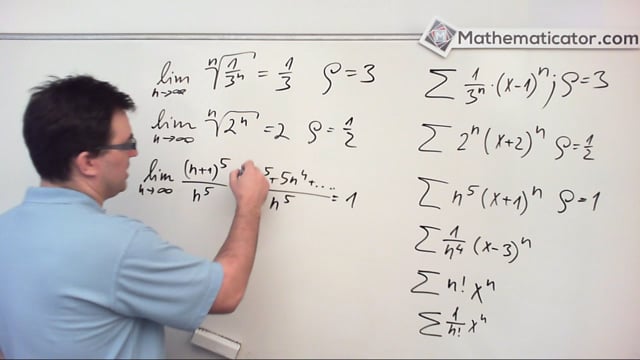 Mathematicator.com
lim n→∞ ⁿ√(1/3ⁿ) = 1/3 ρ = 3
lim n→∞ ⁿ√(2ⁿ) = 2 ρ = 1/2
lim n→∞ (n+1)⁵/n⁵ ⁵+5n⁴+.../n⁵ = 1
∑ 1/3ⁿ · (x-1)ⁿ; ρ = 3
∑ 2ⁿ (x+2)ⁿ ρ = 1/2
∑ n⁵ (x+1)ⁿ ρ = 1
∑ 1/n⁴ (x-3)ⁿ
∑ n! xⁿ
∑ 1/n! xⁿ